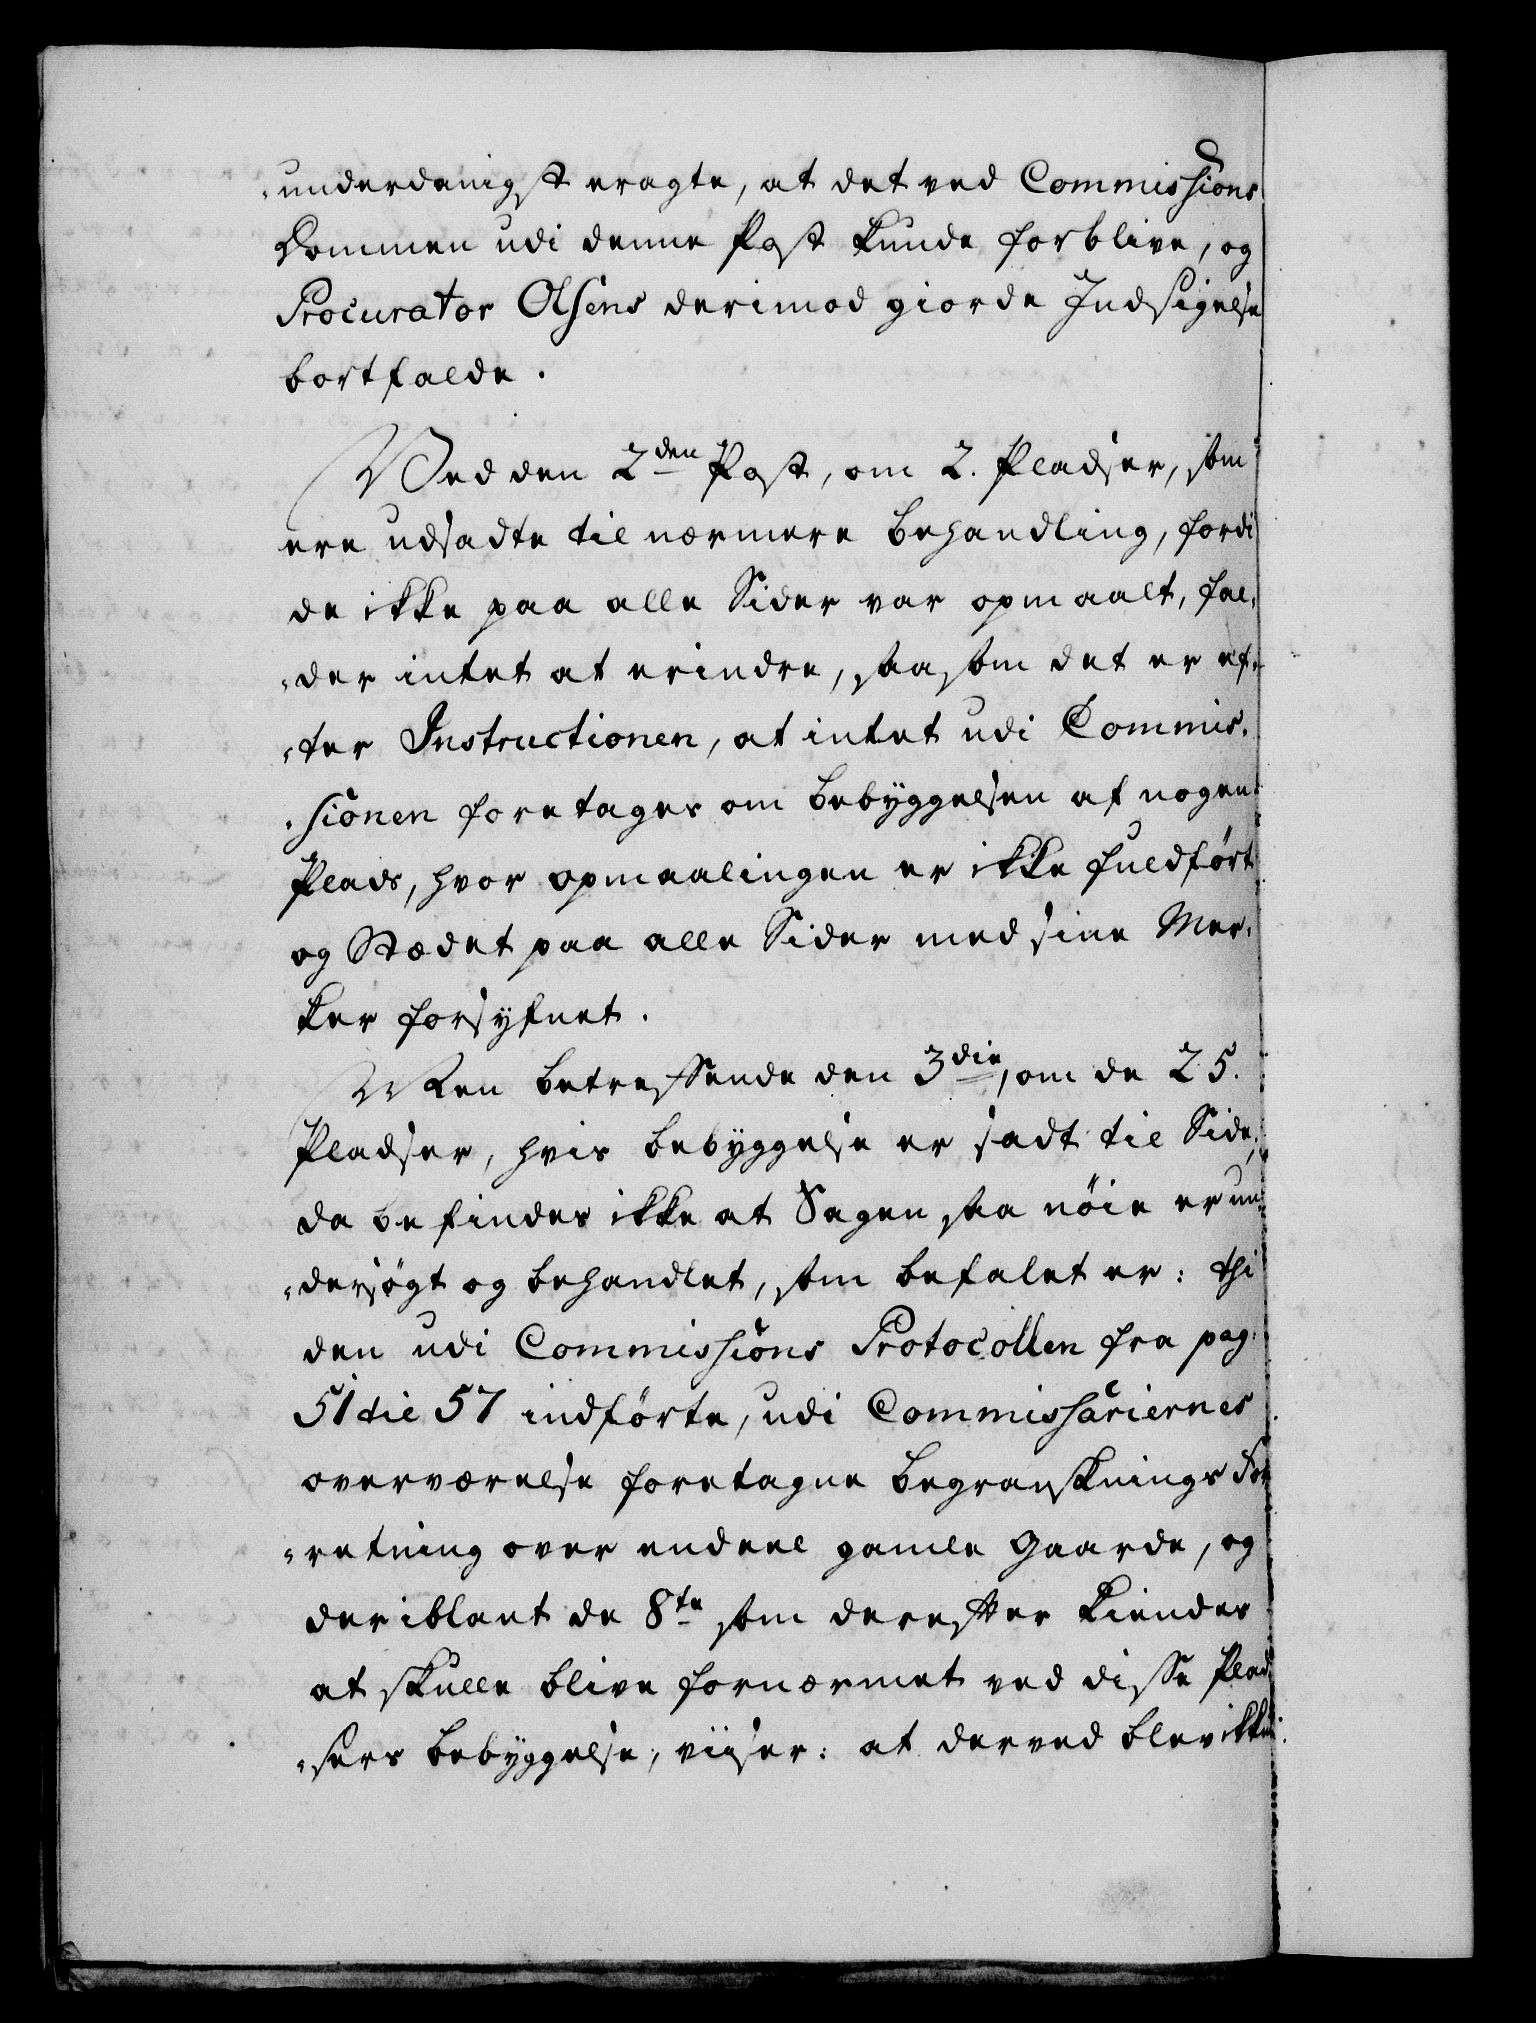 underdanigst eragte, at det ved Commissions
Dommen udi denne Post kunde forblive, og
Procurator Olsens derimod giorde Indsigelse
bortfalde.
Ved den 2den Post, om 2. Pladser, som
ere udsadte til nærmere behandling, fordi
de ikke paa alle Sider var opmaalt, fal-
der intet at erindre, saasom det er ef-
ter Instructionen, at intet udi Commis-
sionen foretages om bebÿggelsen af nogen
Plads, hvor opmaalingen er ikke fuldført
og Stædet paa alle Sider med sine Mer-
ker forsÿfnet.
Men betreffende den 3die, om de 25.
Pladser, hvis bebÿggelse er sadt til Side,
da befindes ikke at Sagen saa nöie er un-
dersögt og behandlet, som befalet er: thi
den udi Commissions Protocollen fra pag:
51 til 57 indförte, udi Commissariernes
overværelse foretagne begransknings For
retning over endeel gamle Gaarde, og
deriblant de 8te som derefter kiendes
at skulle blive fornærmet ved disse Plad
sers bebÿggelse, viiser: at derved blev ikke